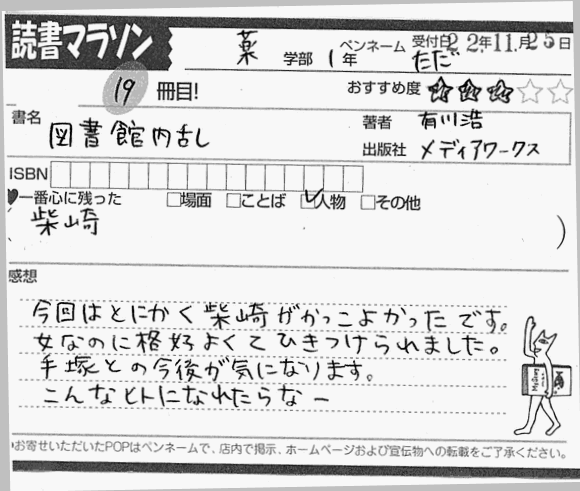 読書マラソン
薬 学部 1年
ペンネーム ただ
受付日22年11月25日
19 冊目!
おすすめ度 ★★★☆☆
書名 図書館内乱
著者 有川浩
出版社 メディアワークス
ISBN
♥一番心に残った □場面 □ことば ☑人物 □その他
(柴崎)
感想
今回はとにかく柴崎がかっこよかったです。
女なのに格好よくてひきつけられました。
手塚との今後が気になります。
こんなヒトになれたらなー
お寄せいただいたPOPはペンネームで、店内で掲示、ホームページおよび宣伝物への転載をご了承ください。